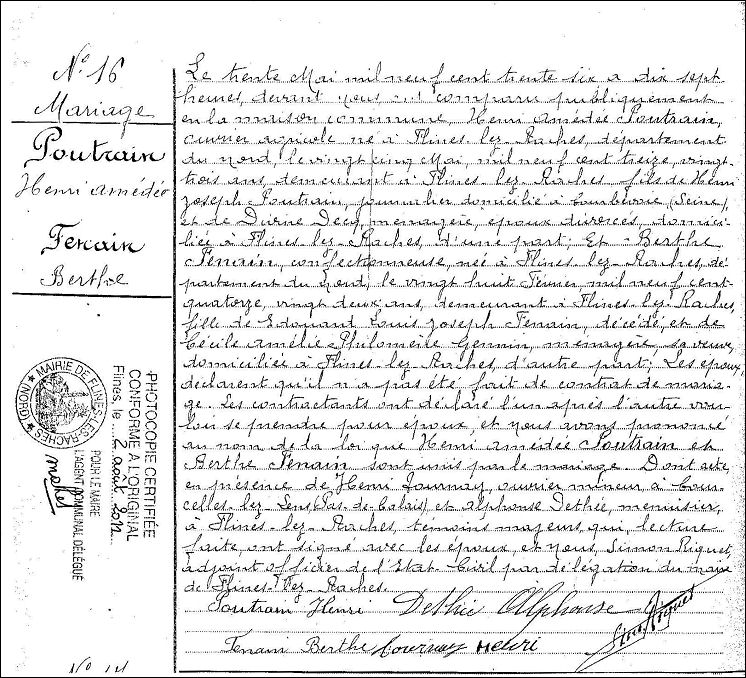 N° 16
Mariage
Poutrain
Henri Amédée
Fenain
Berthe
Le trente Mai mil neuf cent trente six a dix sept
heures, devant nous ont comparu publiquement
en la maison commune, Henri Amédée Poutrain,
ouvrier agricole né à Flines-lez-Raches, département
du Nord, le vingt cinq Mai, mil neuf cent treize, vingt-
trois ans, demeurant à Flines-lez-Raches fils de Henri
Joseph Poutrain, journalier domicilié à Courbevoie (Seine),
et de Divine Decq, ménagère, époux divorcés, domici-
liée à Flines-lez-Raches, d'une part; Et Berthe
Fenain, confectionneuse, née à Flines-lez-Raches, dé-
partement du Nord, le vingt huit Février mil neuf cent
quatorze, vingt deux ans, demeurant à Flines-lez-Raches,
fille de Edouard Louis Joseph Fenain, décédé, et de
Cécile Amélie Philomène ménagère sa veuve,
domiciliée à Flines-lez-Raches, d'autre part; Les époux,
déclarent qu'il n'a pas été fait de contrat de maria-
ge. Les contractants ont déclaré l'un après l'autre vou-
loir se prendre pour époux, et nous avons prononcé
au nom de la loi que Henri Amédée Poutrain et
Berthe Fenain sont unis par le mariage. Dont acte
en présence de Henri Tournay, ouvrier mineur, à Cour-
celles-lez-Lens (Pas-de-Calais) et Alphonse Dethée, menuisier,
à Flines-lez-Raches, témoins majeurs, qui, lecture
faite, ont signé avec les époux, et Nous, Simon Riquet,
adjoint officier de l'Etat-Civil par délégation du maire
de Flines-lez-Raches.
Poutrain Henri Alphonse
Fenain Berthe Tournay Henri
MAIRIE DE FLINES-LES-RACHES (NORD)
PHOTOCOPIE CERTIFIÉE
CONFORME À L'ORIGINAL
Flines, le 2 août 2012
POUR LE MAIRE
L'AGENT COMMUNAL DÉLÉGUÉ